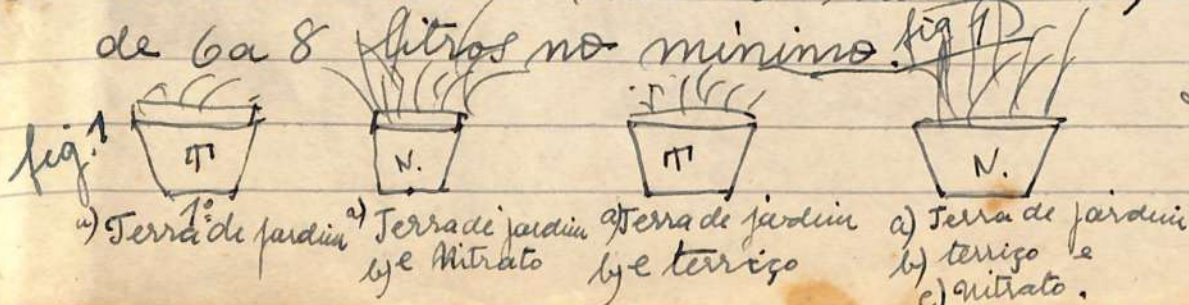 de 6 a 8 litros no mínimo. fig 1
fig. 1
T
N.
T
N.
1º
a) Terra de jardim
a) Terra de jardim
b) e Nitrato
a) Terra de jardim
b) e terriço
a) Terra de jardim
b) terriço e
c) nitrato.